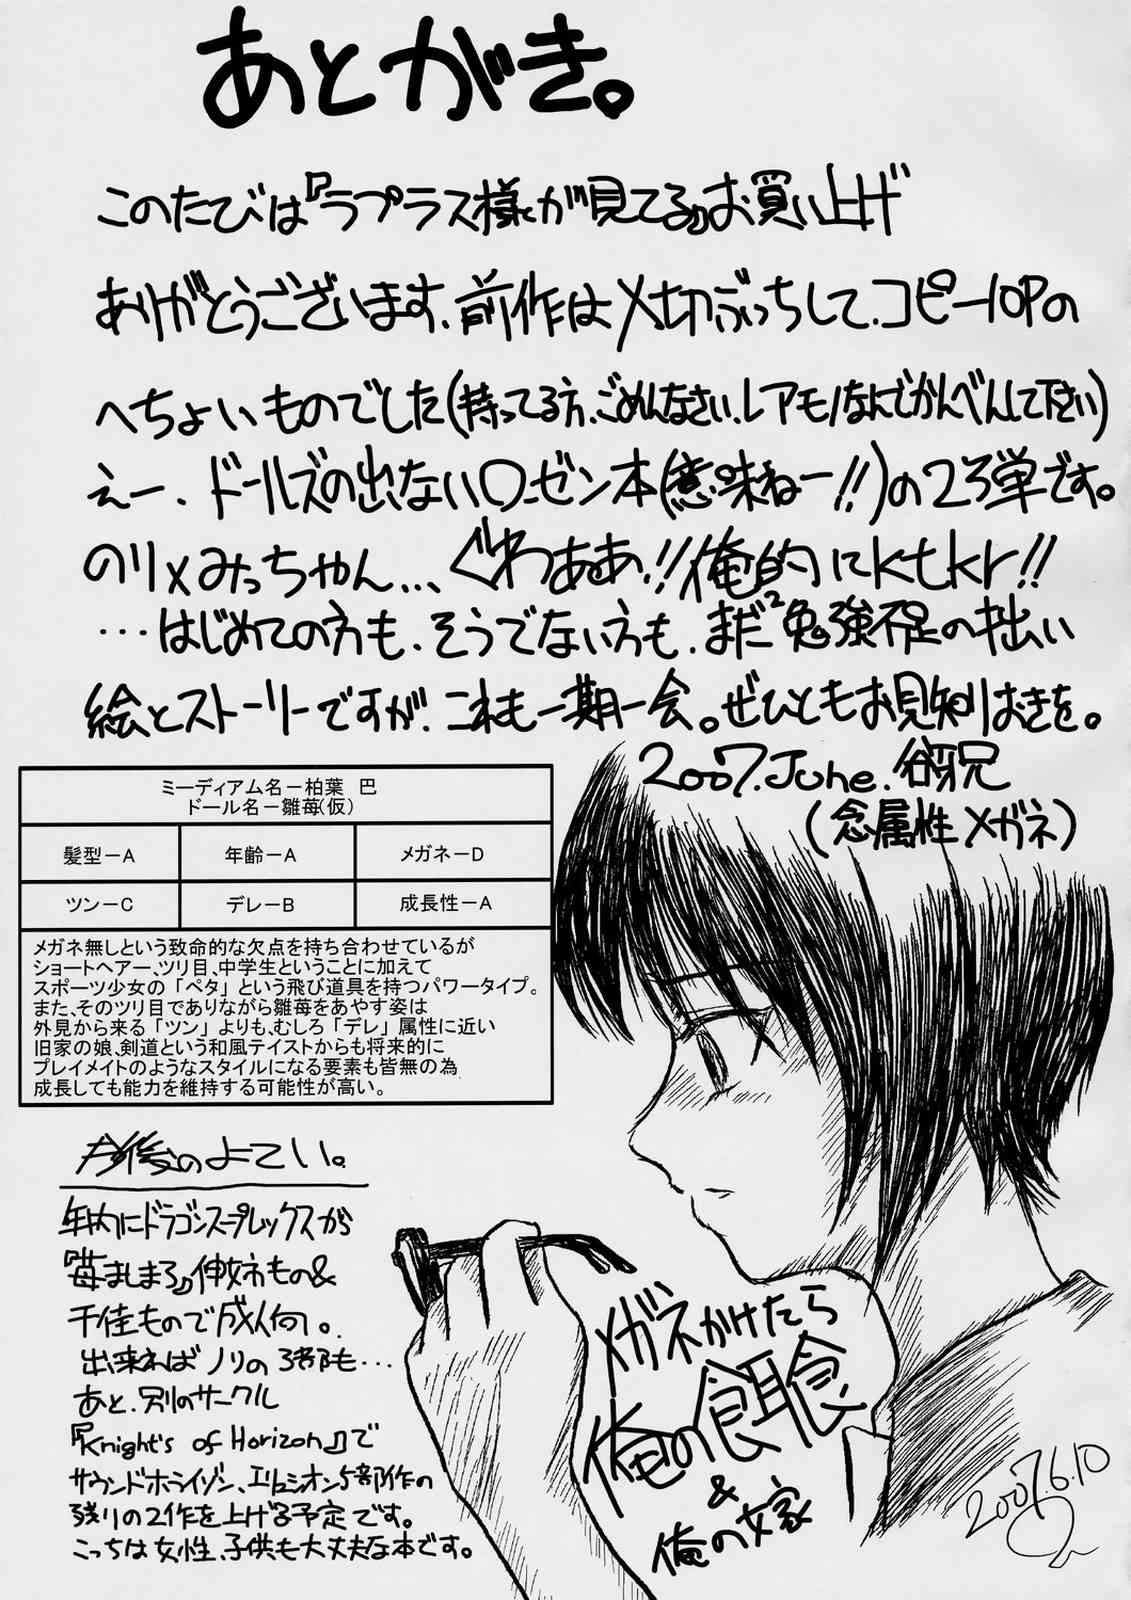 あとがき。
このたびは『ラプラス様が見てる』お買い上げ
ありがとうございます、前作は〆切ぶっちして、コピー10Pの
へちょいものでした(持ってる方、ごめんなさい、レアモノなんでかんべんして下さい)
えー、ドールズの出ないローゼン本(意味ねー!!)の2弾です。
のり×みっちゃん…、ぐわぁぁ!!俺的にktkr!!
…はじめての方も、そうでない方も、まだ²勉強不足の拙い
絵とストーリーですが、これも一期一会。ぜひともお見知りおきを。
2007.June.谷牙兄
(念属性メガネ)
ミーディアム名－柏葉　巴
ドール名－雛苺(仮)
髪型－A 年齢－A メガネ－D
ツン－C デレ－B 成長性－A
メガネ無しという致命的な欠点を持ち合わせているが
ショートヘアー、ツリ目、中学生ということに加えて
スポーツ少女の「ペタ」という飛び道具を持つパワータイプ。
また、そのツリ目でありながら雛苺をあやす姿は
外見から来る「ツン」よりも、むしろ「デレ」属性に近い
旧家の娘、剣道という和風テイストからも将来的に
プレイメイトのようなスタイルになる要素も皆無の為
成長しても能力を維持する可能性が高い。
今後のよてい。
年内にドラゴンスープレックスが
『苺ましまろ』伸姉もの&
千佳もので成人向。
出来ればノリの3部も…
あと、別のサークル
『Knight's of Horizon』で
サウンドホライゾン、エリュシオン5部作の
残りの2作を上げる予定です。
こっちは女性、子供も大丈夫な本です。
メガネかけたら
俺の餌食
&
俺の嫁
2007.6.10